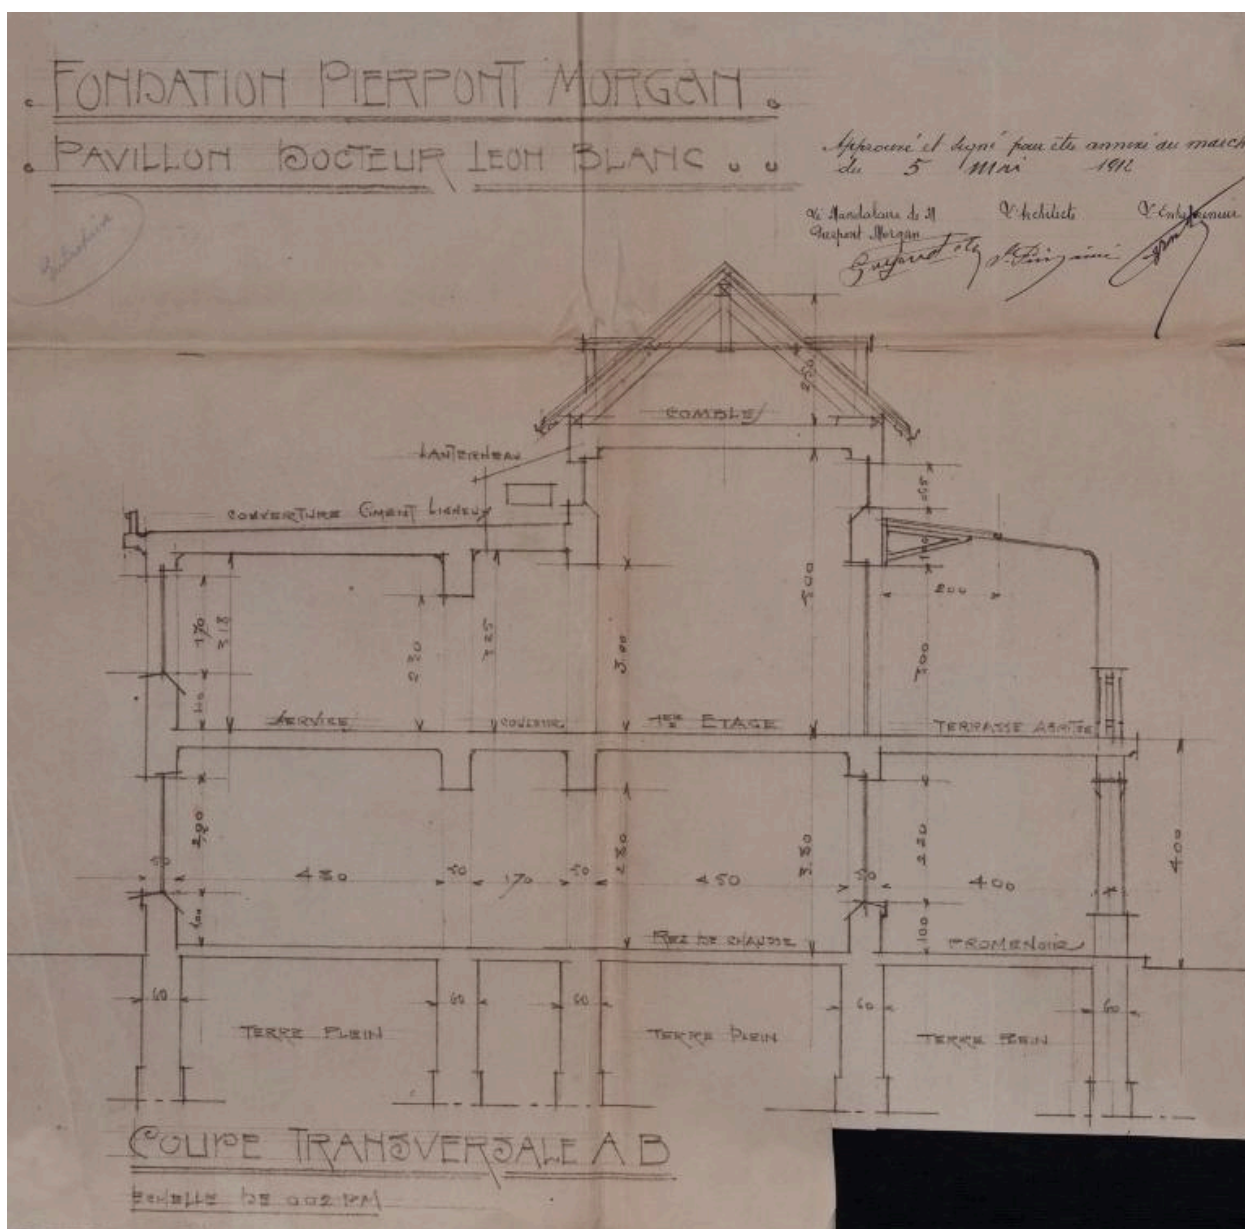 FONDATION PIERPONT MORGAN
PAVILLON DOCTEUR LEON BLANC
Approuvé et signé pour être annexé au march
du 5 Mai 1912
Le Mandataire de M
Pierpont Morgan
L'Architecte
L'Entrepreneur
COMBLE
250
LANTERNEAU
COUVERTURE CIMENT LIGNEUX
100
200
170
318
325
3.00
500
300
110
SERVICE
COULOIR
1ER ETAGE
TERRASSE ABRITEE
50
480
50
170
50
280
450
3.80
50
220
400
400
100
100
REZ DE CHAUSSE
PROMENOIR
60
60
60
60
60
TERRE PLEIN
TERRE PLEIN
TERRE PLEIN
COUPE TRANSVERSALE A B
ECHELLE DE 0.02 PM